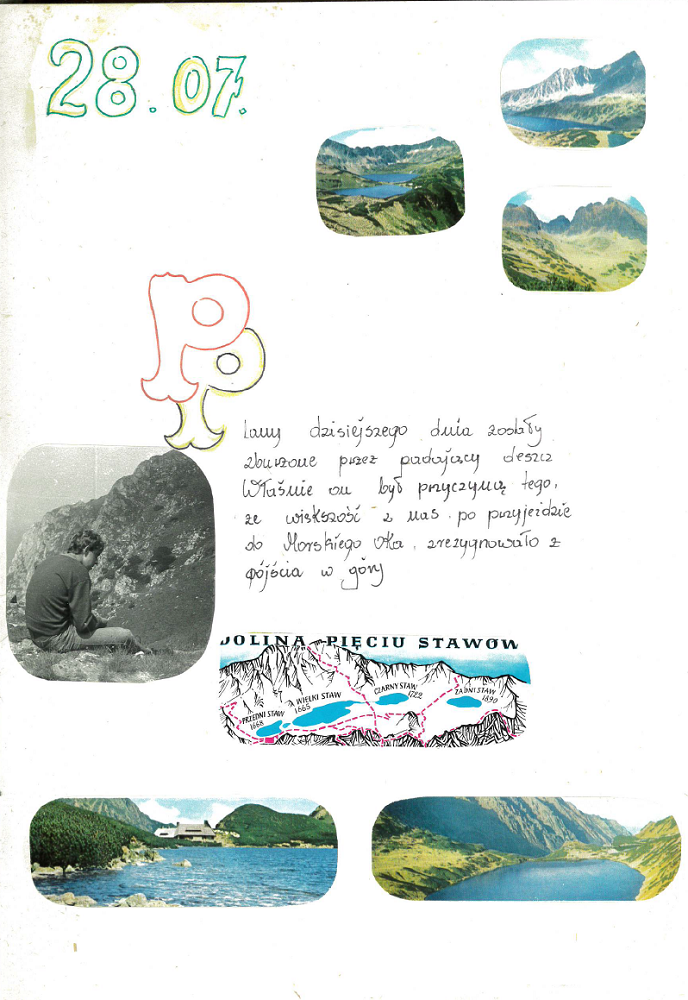 28.07.
P
P
lany dzisiejszego dnia zostały
zburzone przez padający deszcz
Właśnie on był przyczyną tego,
że większość z nas po przyjeździe
do Morskiego Oka, zrezygnowało z
pójścia w góry
DOLINA PIĘCIU STAWÓW
PRZEDNI STAW
1668
WIELKI STAW
1665
CZARNY STAW
1722
ZADNI STAW
1890